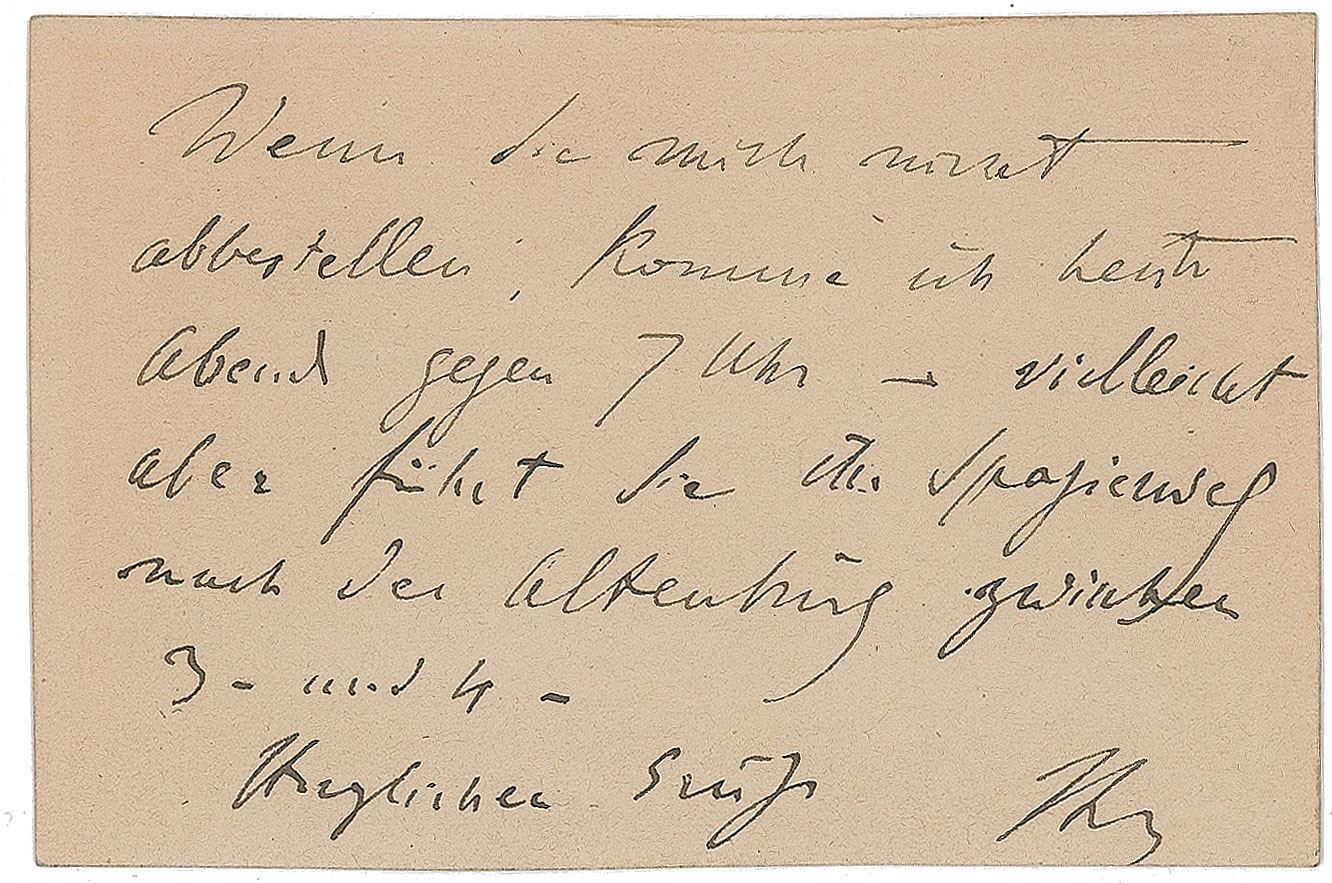 Wenn Sie mich nicht
abbestellen, komme ich heute
Abend gegen 7 Uhr – vielleicht
aber führt Sie Ihr Spazierweg
nach der Altenburg zwischen
3 - und 4 -
Herzlichen Gruß Ihr